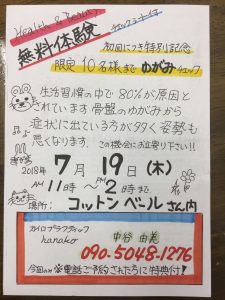 Health & Beauty
無料体験
初回につき特別記念
限定10名様まで ゆがみチェック
生活習慣の中で80%が原因と
されています骨盤のゆがみから
症状に出ている方が多く姿勢も
悪くなります。この機会にお立寄り下さい!!
2018年 7月19日(木)
AM11時〜PM2時まで
場所: コットンベール さん内
カイロプラクティック
hanako
中谷 由美
090-5048-1276
今回のみ お電話ご予約された方に特典付!